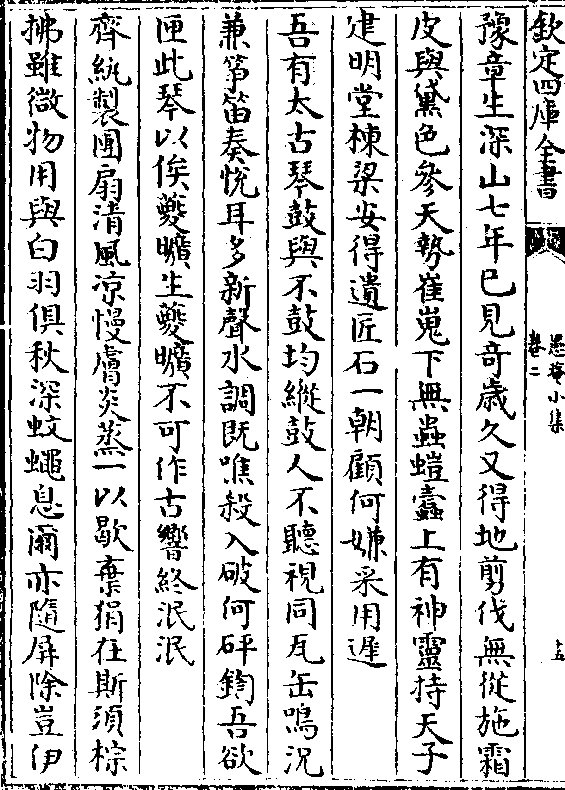 欽定四庫全書
愚菴小集
卷二
十五
豫章生深山七年已見奇歲久又得地剪伐無從施霜
皮與黛色參天勢崔嵬下無蟲螘蠹上有神靈持天子
建明堂棟梁安得遺匠石一朝顧何嫌采用遲
吾有太古琴鼓與不鼓均縱鼓人不聽視同瓦缶鳴況
兼箏笛奏悅耳多新聲水調既噍殺入破何砰鍧吾欲
匣此琴以俟夔曠生夔曠不可作古響終泯泯
齊紈製團扇清風凉慢膚炎蒸一以歇棄捐在斯須棕
拂雖微物用與白羽俱秋深蚊蠅息爾亦隨屏除豈伊